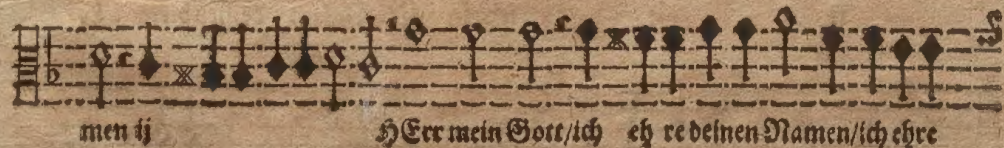 men ij HErr mein Gott/ich eh re deinen Namen/ich ehre